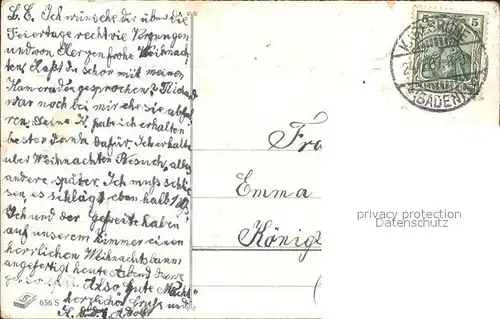 L. E. Ich wünsche dir über die
Feiertage recht viel Vergnügen
und von Herzen frohe Weihnach-
ten. Hast du schon mit meinem
Kameraden gesprochen?
war noch bei mir ehe sie abfuh-
ren. Deine K. habe ich erhalten
besten Dank dafür. Ich erhalte
über Weihnachten Besuch, alles
andere später. Ich muß schlie-
sen, es schlägt eben halb
Ich und der Gefreite haben
auf unserem Zimmer einen
herrlichen Weihnachtsbaum
angefertigt heute Abend
Also Gute Nacht
herzliche Gruß und
K. Adolf
656 S
5 5
(BADEN)
Fr
Emma
König
privacy protection
Datenschutz